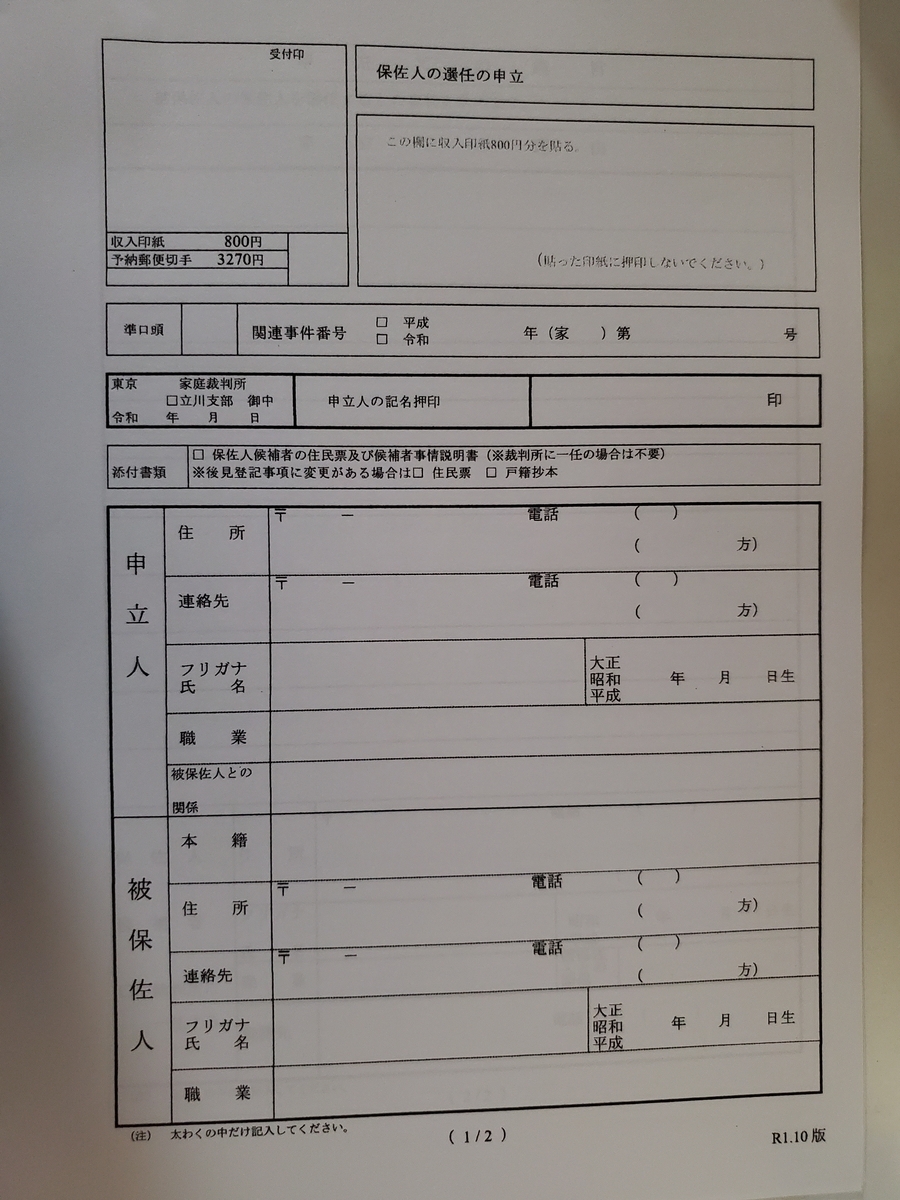 受付印
保佐人の選任の申立
この欄に収入印紙800円分を貼る。
(貼った印紙に押印しないでください。)
収入印紙 800円
予納郵便切手 3270円
準口頭
関連事件番号 □ 平成 □ 令和 年(家 )第 号
東京 家庭裁判所
□立川支部 御中
令和 年 月 日
申立人の記名押印
印
添付書類
□ 保佐人候補者の住民票及び候補者事情説明書(※裁判所に一任の場合は不要)
※後見登記事項に変更がある場合は□ 住民票 □ 戸籍抄本
申立人
住 所
〒 － 電話 ( )
( 方)
連絡先
〒 － 電話 ( )
( 方)
フリガナ
氏 名
大正
昭和 年 月 日生
平成
職 業
被保佐人との
関係
被保佐人
本 籍
住 所
〒 － 電話 ( )
( 方)
連絡先
〒 － 電話 ( )
( 方)
フリガナ
氏 名
大正
昭和 年 月 日生
平成
職 業
(注) 太わくの中だけ記入してください。
( 1 / 2 )
R1.10 版